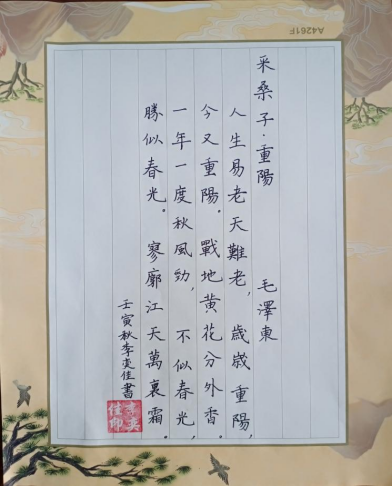 采桑子·重陽 毛澤東
人生易老天難老,歲歲重陽,
今又重陽.戰地黄花分外香.
一年一度秋風勁,不似春光,
勝似春光.寥廓江天萬裏霜.
壬寅秋李奕佳書
李奕
佳印
A4261F